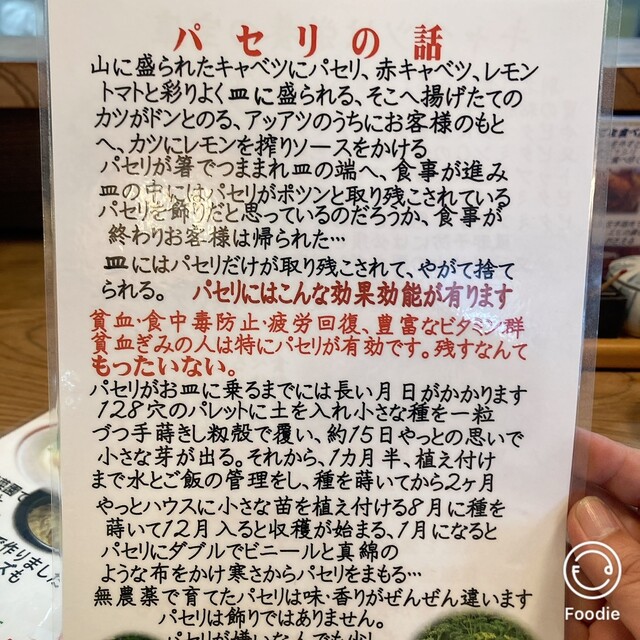 パセリの話
山に盛られたキャベツにパセリ、赤キャベツ、レモン
トマトと彩りよく皿に盛られる、そこへ揚げたての
カツがドンとのる、アッアツのうちにお客様のもと
へ、カツにレモンを搾りソースをかける
パセリが箸でつままれ皿の端へ、食事が進み
皿の中にはパセリがポツンと取り残されている
パセリを飾りだと思っているのだろうか、食事が
終わりお客様は帰られた…
皿にはパセリだけが取り残されて、やがて捨て
られる。 パセリにはこんな効果効能が有ります
貧血・食中毒防止・疲労回復、豊富なビタミン群
貧血ぎみの人は特にパセリが有効です。残すなんて
もったいない。
パセリがお皿に乗るまでには長い月日がかかります
128穴のパレットに土を入れ小さな種を一粒
づつ手蒔きし籾殻で覆い、約15日やっとの思いで
小さな芽が出る。それから、1カ月半、植え付け
まで水とご飯の管理をし、種を蒔いてから2ヶ月
やっとハウスに小さな苗を植え付ける8月に種を
蒔いて12月入ると収穫が始まる、1月になると
パセリにダブルでビニールと真綿の
ような布をかけ寒さからパセリをまもる…
無農薬で育てたパセリは味・香りがぜんぜん違います
パセリは飾りではありません。
パセリが嫌いな人でも少し
作りました
ズも
Foodie